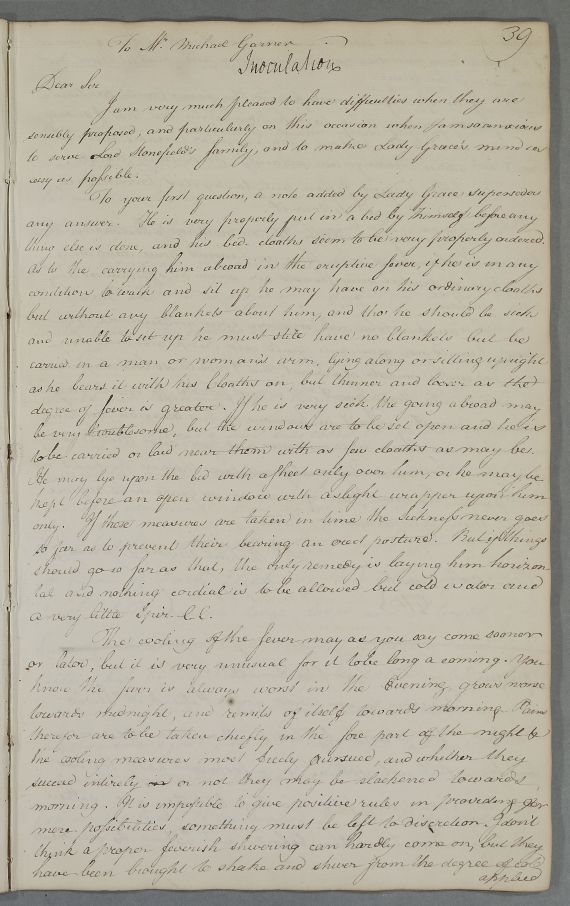 39
To Mr. Michael Garner
Inoculation
Dear Sir
I am very much pleased to have difficulties when they are
sensibly proposed, and particularly on this occasion when I am so anxious
to serve Lord Stonefield's family, and to make Lady Grace's mind as
easy as possible.
To your first question, a note added by Lady Grace supersedes
any answer. He is very properly put in a bed by himself before any
thing else is done, and his bed cloaths seem to be very properly ordered.
As to the carrying him abroad in the eruptive fever, if he is in any
condition to walk and sit up he may have on his ordinary cloaths
but without any blankets about him, and tho' he should be sick
and unable to sit up he must still have no blankets but be
carried in a man or woman's arm, lying along or sitting upright
as he bears it with his Cloaths on, but thinner and looser as the
degree of fever is greater. If he is very sick, the going abroad may
be very troublesome, but the windows are to be set open and he is
to be carried or laid near them with as few cloaths as may be.
He may lye upon the bed with a sheet only over him, or he may be
kept before an open window with a slight wrapper upon him
only. If these measures are taken in time the sickness never goes
so far as to prevent their bearing an erect posture. But if things
should go so far as that, the only remedy is laying him horizon
tal and nothing cordial is to be allowed but cold water and
a very little Spir. C.C.
The cooling of the fever may as you say come sooner
or later, but it is very unusual for it to be long a coming. You
know the fever is always worst in the Evening, grows worse
towards midnight, and remits of itself towards morning.
therefor are to be taken cheefly in the fore part of the night &
the cooling measures most freely pursued, and whether they
succeed intirely or not they may be slackened towards
morning. It is impossible to give positive rules in providing for
mere possibilities, something must be left to discretion. I don't
think a proper feverish shivering can hardly come on, but they
have been brought to shake and shiver from the degree of cold
applied